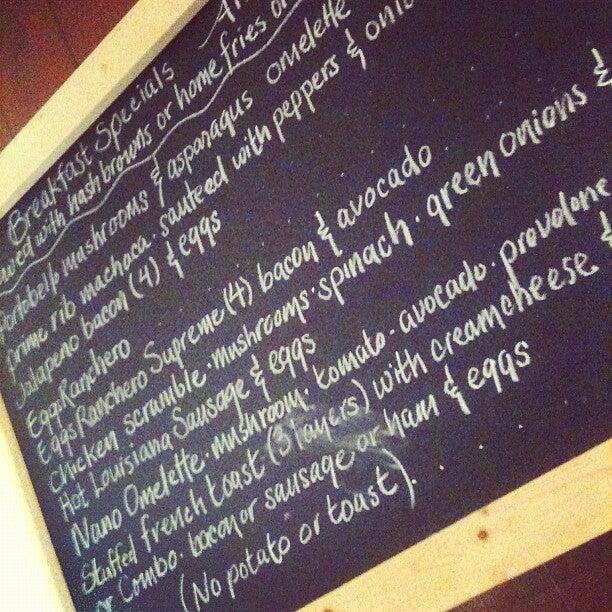 Breakfast Specials
with hashbrowns or home fries or
Portobello mushrooms & asparagus omelette
Prime rib machaca. sauteed with peppers &
Jalapeno bacon (4) & eggs
Eggs Ranchero
Eggs Ranchero Supreme (4) bacon & avocado
Chicken scramble. mushrooms. spinach. green onions &
Hot Louisiana Sausage & eggs
Nano Omelette. mushroom. tomato. avocado. provolone
Stuffed french toast (3 layers) with creamcheese &
or Combo. bacon or sausage or ham & eggs
(No potato or toast).